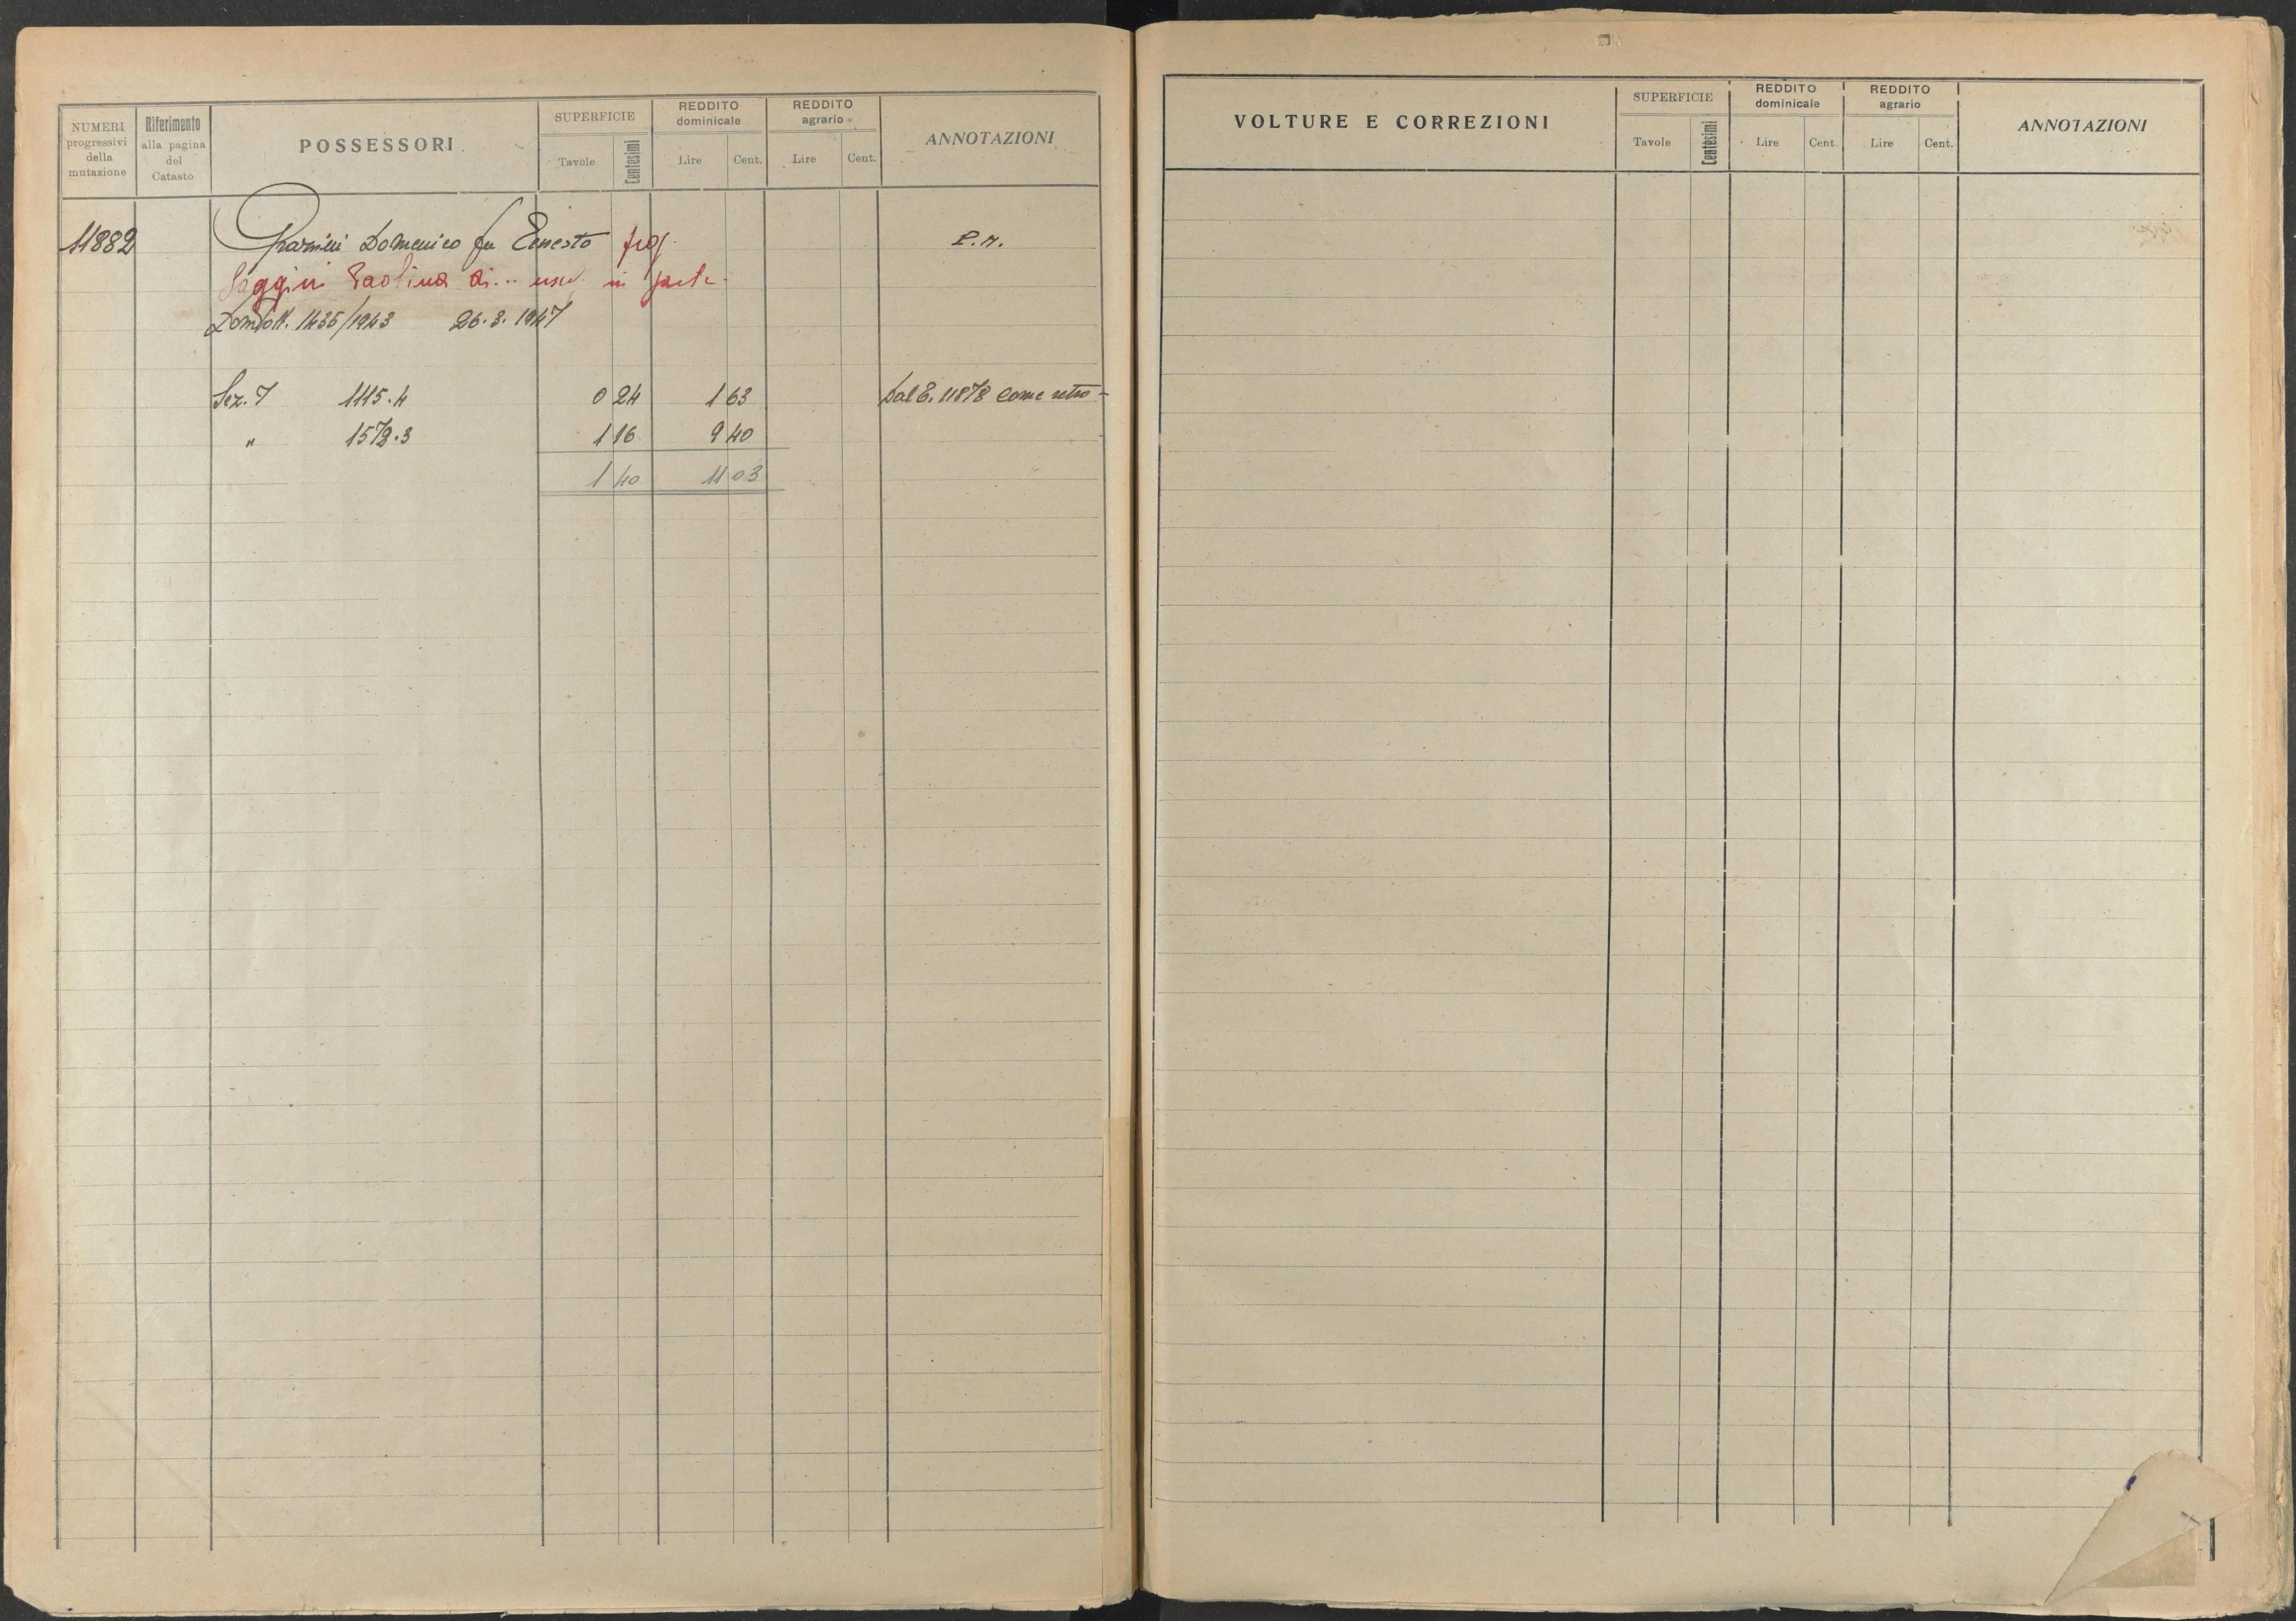 NUMERI progressivi della mutazione
Riferimento alla pagina del Catasto
POSSESSORI
SUPERFICIE
Tavole Centesimi
REDDITO dominicale
Lire Cent.
REDDITO agrario
Lire Cent.
ANNOTAZIONI
11882 Domenico fu Ernesto P.M.
Saggini Paolina di... usuf. in parte
26.3.1947
Sez. I 1115.4 0 24 1 63 Dal E. 11878 come retro
" 1572.3 1 16 9 40
1 40 11 03
VOLTURE E CORREZIONI
SUPERFICIE
Tavole Centesimi
REDDITO dominicale
Lire Cent.
REDDITO agrario
Lire Cent.
ANNOTAZIONI